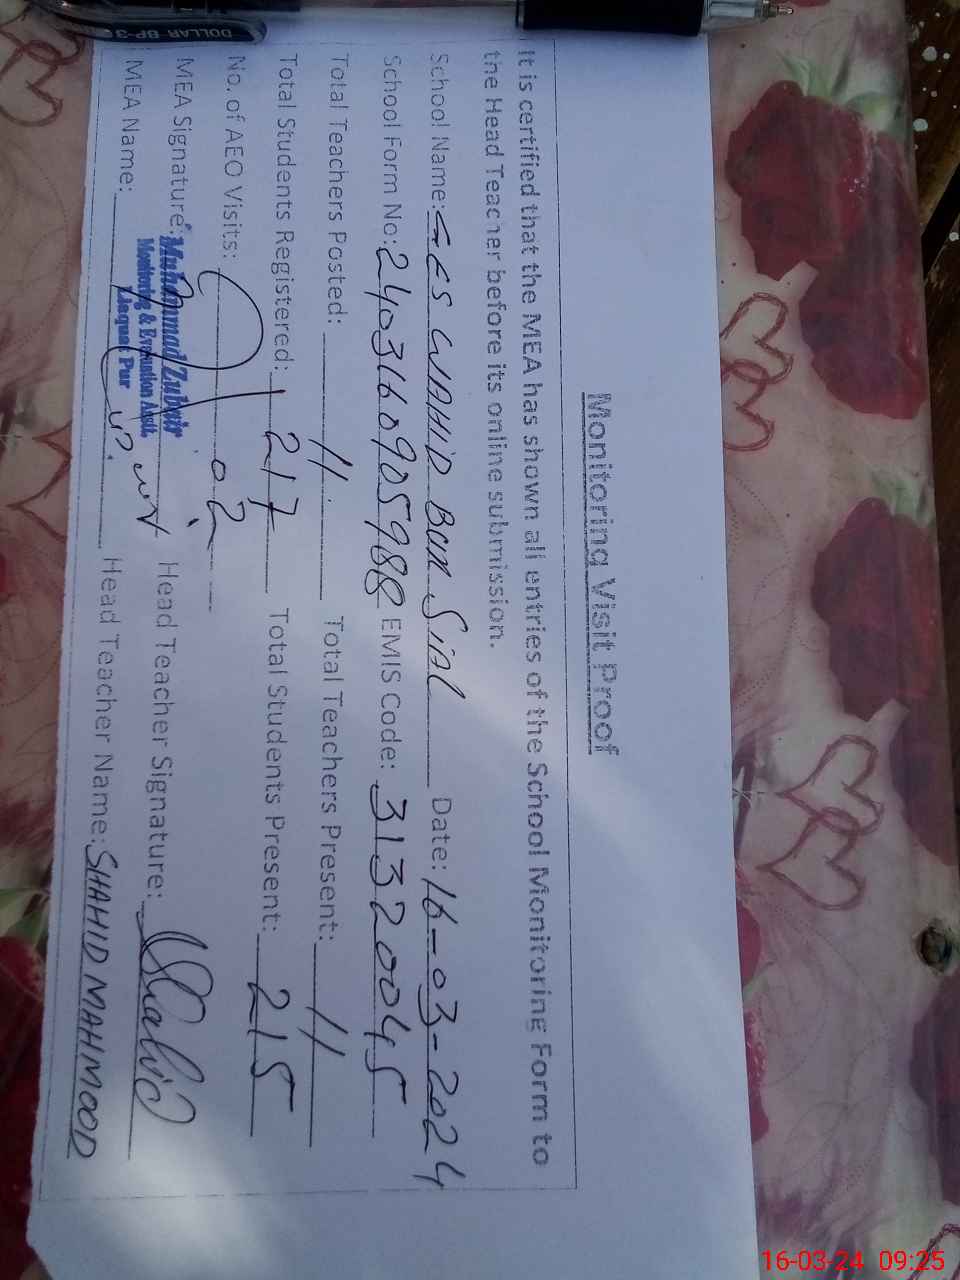 Monitoring Visit Proof
It is certified that the MEA has shown all entries of the School Monitoring Form to
the Head Teacher before its online submission.
School Name: GES WAHID BUX SiAL Date: 16-03-2024
School Form No: 240316090598 EMIS Code: 31320045
Total Teachers Posted: 11 Total Teachers Present: 11
Total Students Registered: 217 Total Students Present: 215
No. of AEO Visits: 02
MEA Signature: Head Teacher Signature: Shahid
MEA Name: Head Teacher Name: SHAHID MAHMOOD
Muhammad Zubair
Monitoring & Evaluation Asstt.
Liaquat Pur
DOLLAR BP-3
16-03-24 09:25